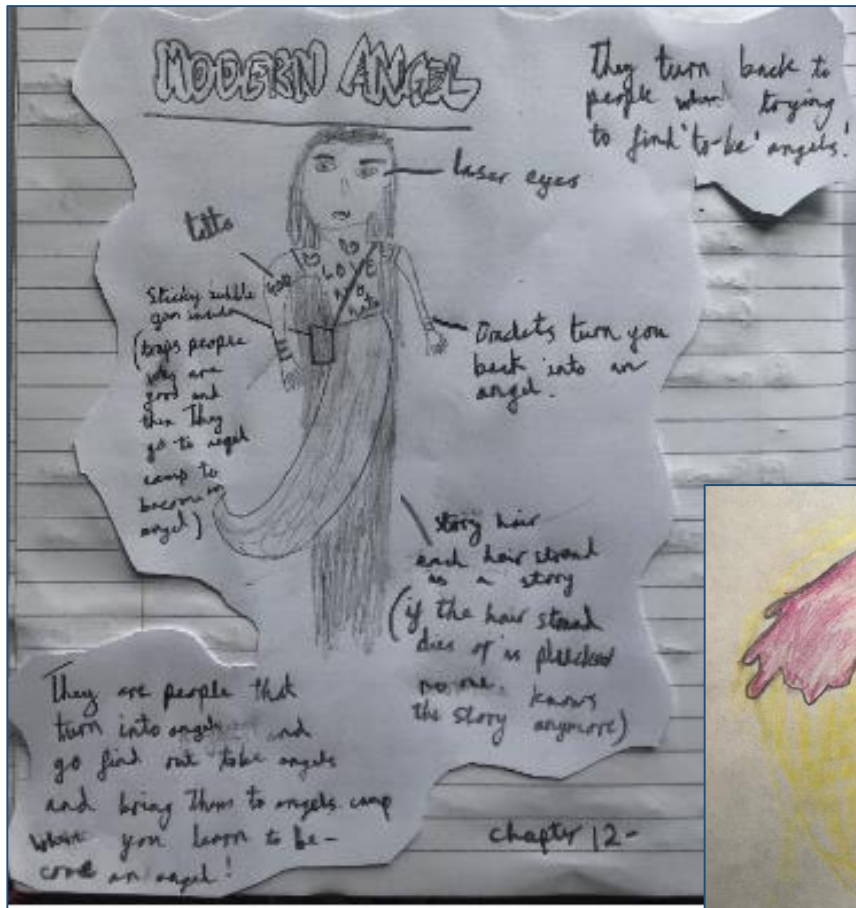 MODERN ANGEL
They turn back to
people when trying
to find 'to-be' angels!
laser eyes
GOD
LOVE
NO
hate
Sticky bubble
gun inside
(traps people
who are
good and
then they
go to angel
camp to
become an
angel)
turn you
back into an
angel.
story hair
each hair strand
is a story
(if the hair strand
dies or is plucked
no one knows
the story anymore)
They are people that
turn into angels and
go find out to be angels
and bring them to angels camp
where you learn to be-
come an angel!
chapter 12-